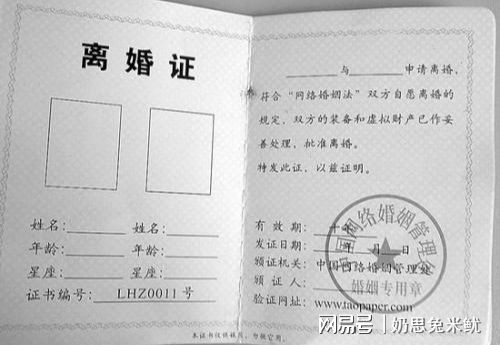 离婚证
姓名: 姓名:
年龄: 年龄:
星座: 星座:
证书编号: LHZ0011号
本证书仅供娱乐,勿做它用。
与 申请离婚,
符合“网络婚姻法”双方自愿离婚的
规定,双方的装备和虚拟财产已作妥
善处理,批准离婚。
特发此证,以兹证明。
有效期:
发证日期: 年 月 日
颁证机关: 中国网络婚姻管理处
颁证人:
验证网址: www.taopaper.com
中国网络婚姻管理处
婚姻专用章
网易号 | 奶思兔米鱿